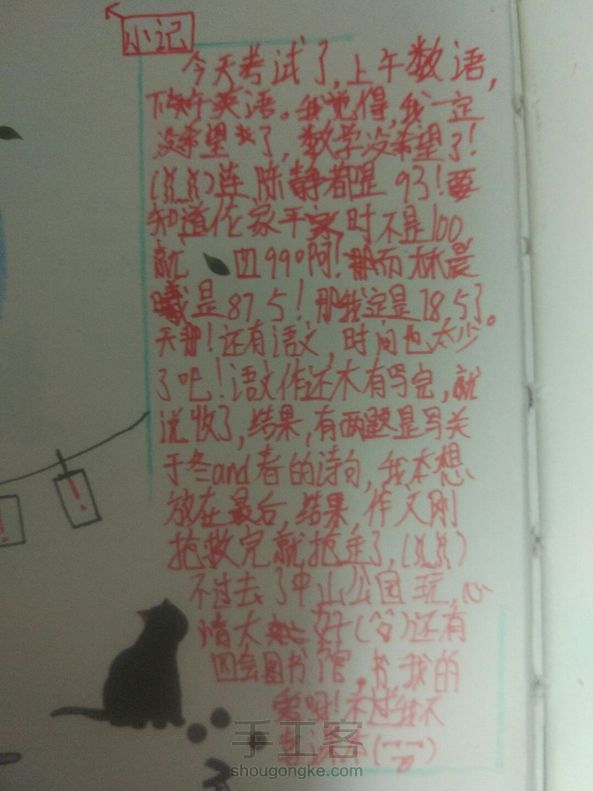 小记
今天考试了,上午数语,
下午英语。我觉得,我一定
没希望了,数学没希望了!
连陆静都是93!要
知道人家平时不是100
就 四99啊!而林晨
曦是87.5!那我定是78.5了。
天哪!还有语文,时间也太少
了吧!语文作还木有写完,就
说收了,结果,有两题是写关
于冬and春的诗句,我本想
放在最后,结果,作文刚
抢救完就抢走了,
不过去了中山公园玩,心
情大 好 还有
四会图书馆。书,我的
爱呀!不过我不
手工客
shougongke.com